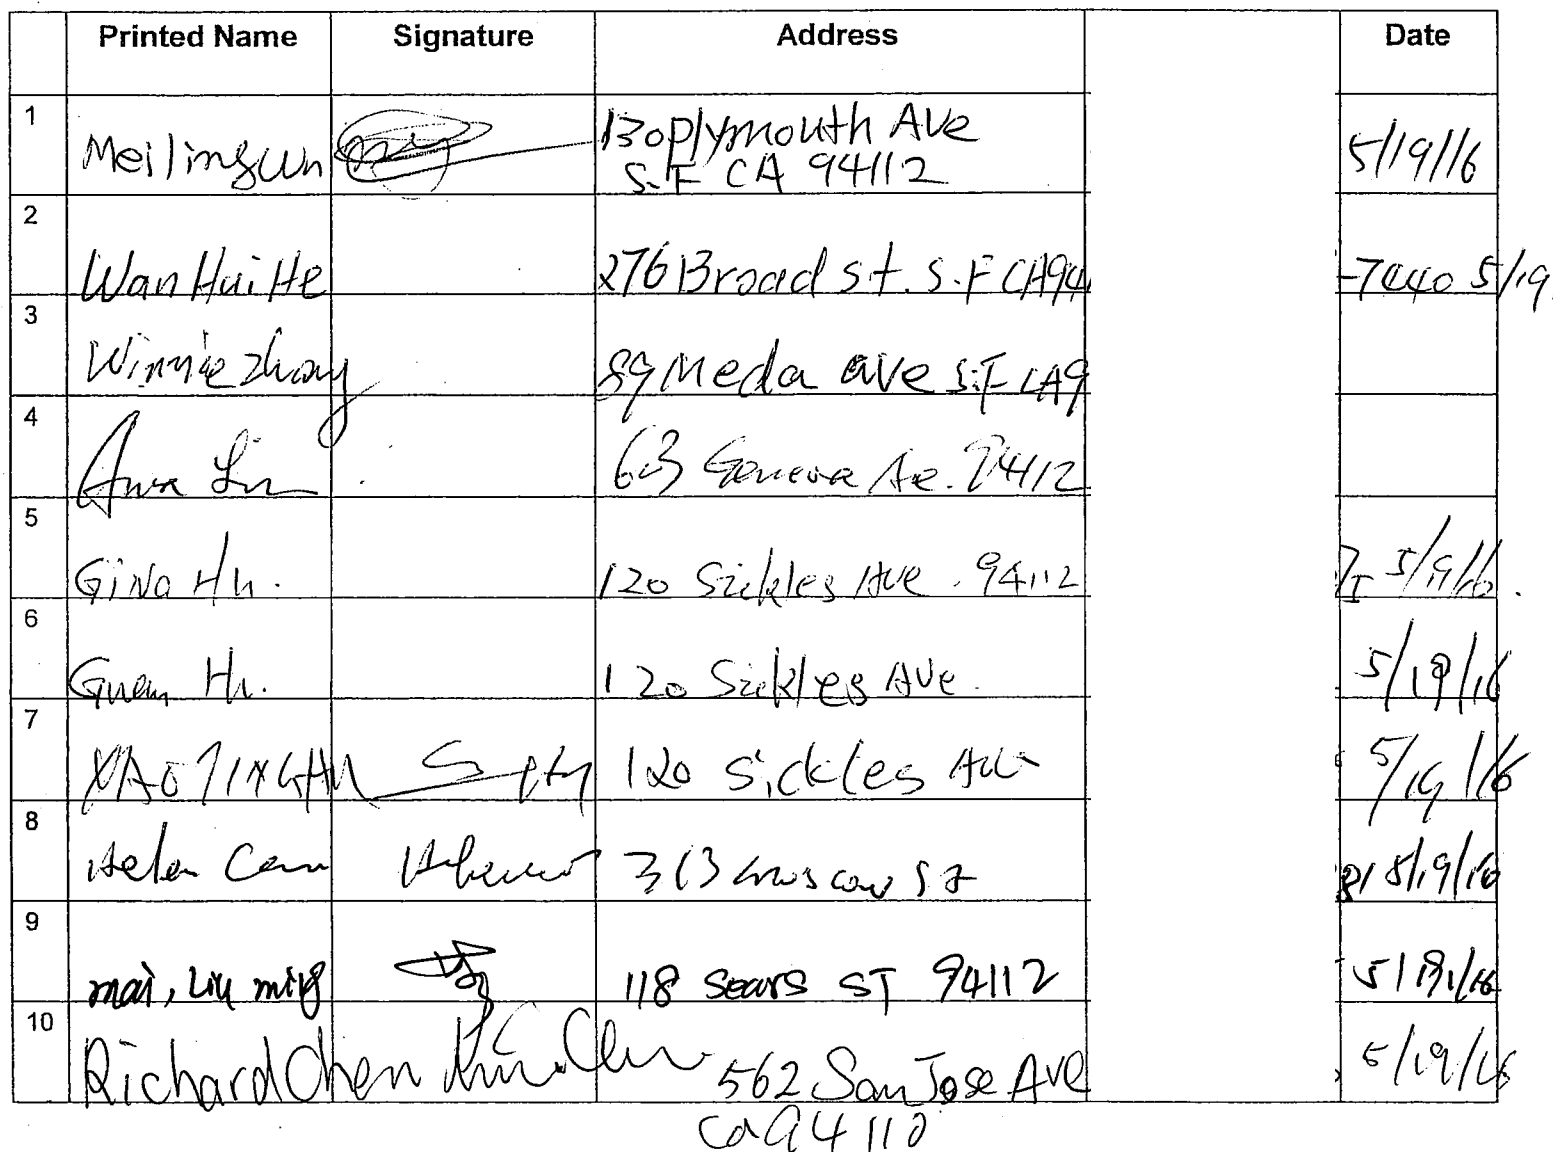 Printed Name Signature Address Date
1 Meiling Wn 130 plymouth Ave 5/19/16
S.F CA 94112
2 Wan Hui He 276 Broad St. S.F CA 94 -7440 5/19
3 Winnie Zhang 89 Meda ave S.F CA 9
4 Anna Lin 63 Geneva Ave. 94112
5 Gina Hu. 120 Sickles Ave. 94112 5/19/16.
6 Guan Hu. 120 Sickles Ave. 5/19/16
7 120 Sickles Ave 5/19/16
8 Helen 313 moscow St 5/19/16
9 mai, Liu ming 118 Sears ST 94112 5/19/16
10 Richard Chen 562 San Jose Ave 5/19/16
Ca 94110